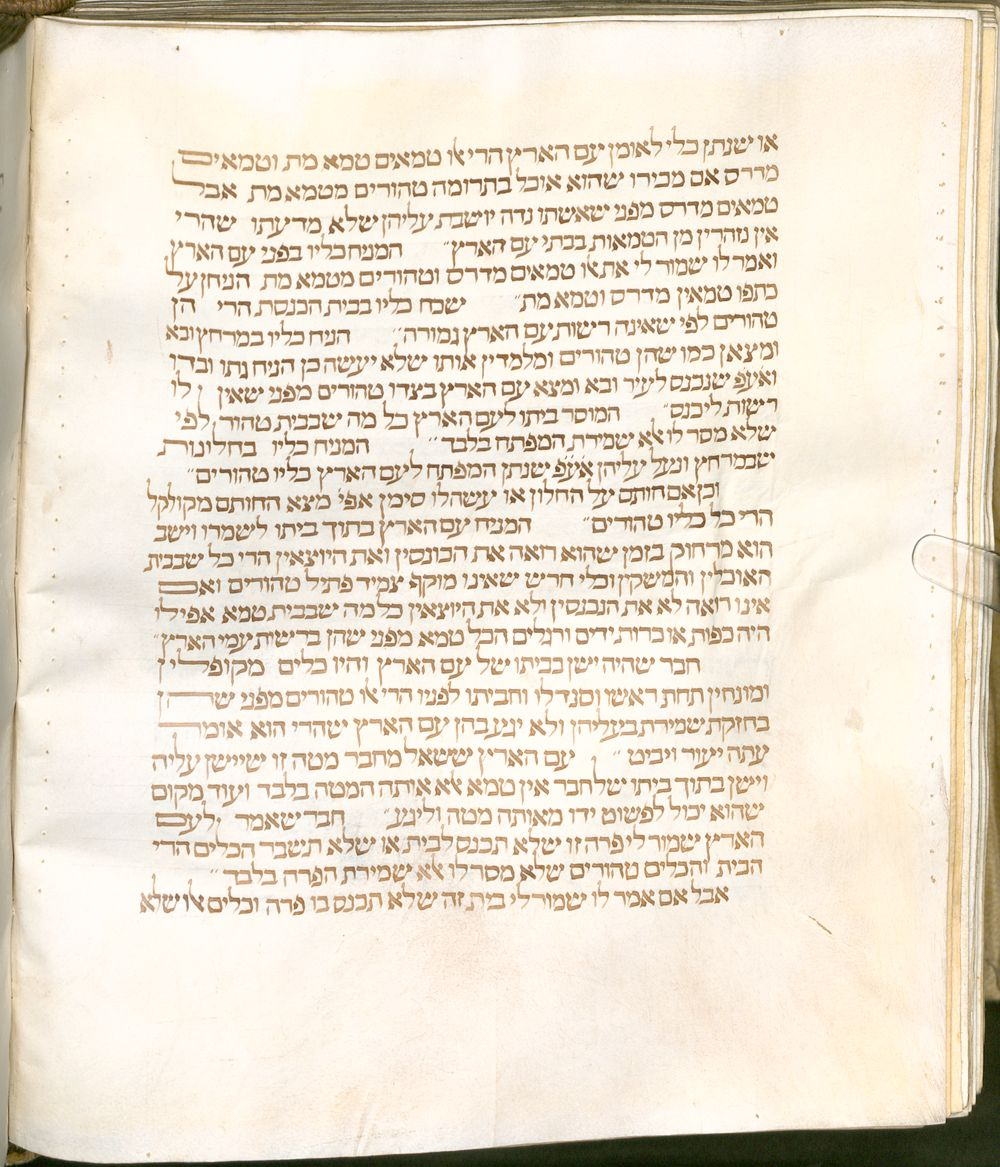 או שנתן כלי לאומן עם הארץ הרי אלו טמאים טמא מת וטמאים
מדרס אם מכירו שהוא אוכל בתרומה טהורים מטמא מת אבל
טמאים מדרס מפני שאשתו נדה יושבת עליהן שלא מדעתו שהרי
אין נזהרין מן הטמאות בבתי עם הארץ״ המניח כליו בפני עם הארץ
ואמר לו שמור לי את אלו טמאים מדרס וטהורים מטמא מת הניחן על
כתפו טמאין מדרס וטמא מת״ שכח כליו בבית הכנסת הרי הן
טהורים לפי שאינה רישות עם הארץ גמורה״ הניח כליו במרחץ ובא
ומצאן כמו שהן טהורים ומלמדין אותו שלא יעשה כן הניח גתו ובורו
ואעפ שנכנס לעיר ובא ומצא עם הארץ בצדו טהורים מפני שאין לו
רישות ליכנס״ המוסר ביתו לעם הארץ כל מה שבבית טהור לפי
שלא מסר לו אלא שמירת המפתח בלבד״ המניח כליו בחלונות
שבמרחץ ונעל עליהן אעפ שנתן המפתח לעם הארץ כליו טהורים״
וכן אם חותם על החלון או עשה לו סימן אפי׳ מצא החותם מקולקל
הרי כל כליו טהורים״ המניח עם הארץ בתוך ביתו לשמרו וישב
הוא מרחוק בזמן שהוא רואה את הכונסין ואת היוצאין הרי כל שבבית
האוכלין והמשקין וכלי חרש שאינו מוקף צמיד פתיל טהורים ואם
אינו רואה לא את הנכנסין ולא את היוצאין כל מה שבבית טמא אפילו
היה כפות או כרות ידים ורגלים הכל טמא מפני שהן ברישות עמי הארץ״
חבר שהיה ישן בביתו של עם הארץ והיו כלים מקופלין
ומונחין תחת ראשו וסנדלו וחביתו לפניו הרי אלו טהורים מפני שהן
בחזקת שמירת בעליהן ולא יגע בהן עם הארץ שהרי הוא אומר
עתה יעור ויביט״ עם הארץ ששאל מחבר מטה זו שיישן עליה
וישן בתוך ביתו של חבר אין טמא אלא אותה המטה בלבד ועוד מקום
שהוא יכול לפשוט ידו מאותה מטה וליגע״ חבר שאמר לעם
הארץ שמור לי פרה זו שלא תכנס לבית או שלא תשבר הכלים הרי
הבית והכלים טהורים שלא מסר לו אלא שמירת הפרה בלבד״
אבל אם אמר לו שמור לי בית זה שלא תכנס בו פרה וכלים אלו שלא